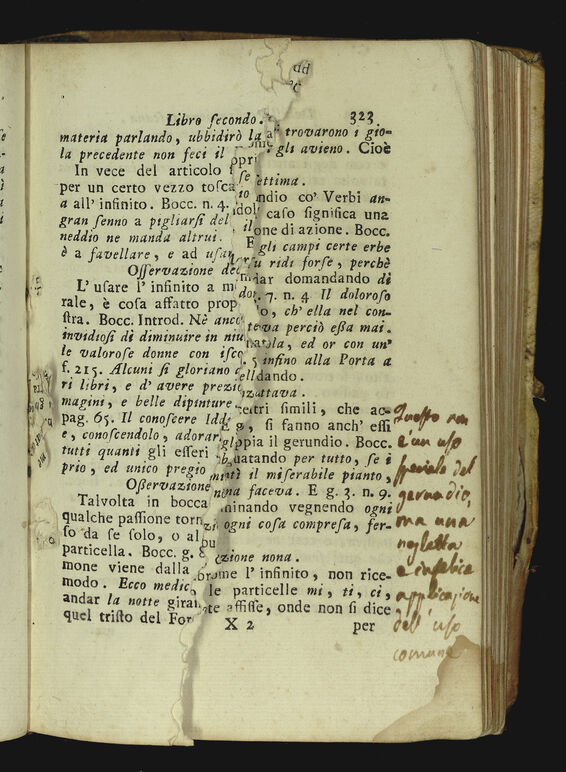 Libro ſecondo. 323
materia parlando, ubbidirò la trovarono i gio-
la precedente non feci il gli avieno. Cioè
In vece del articolo ettima.
per un certo vezzo toſca ndio co' Verbi an-
a all' infinito. Bocc. n. 4. caſo ſignifica una
gran ſenno a pigliarſi del one di azione. Bocc.
neddio ne manda altrui. E gli campi certe erbe
è a favellare, e ad uſan ridi forſe, perchè
Oſſervazione de dar domandando di
L' uſare l' infinito a m 7. n. 4 Il doloroſo
rale, è coſa affatto prop o, ch' ella nel con-
ſtra. Bocc. Introd. Nè anco teva perciò eßa mai.
invidioſi di diminuire in niu la, ed or con un'
le valoroſe donne con iſco 5 inſino alla Porta a
f. 215. Alcuni ſi gloriano dando.
ri libri, e d' avere prezio zzattava.
magini, e belle dipinture tri ſimili, che ac-
pag. 65. Il conoſcere Idd g, ſi fanno anch' eſſi
e, conoſcendolo, adorar ppia il gerundio. Bocc.
tutti quanti gli eſſeri guatando per tutto, ſe i
prio, ed unico pregio il miſerabile pianto,
Oſſervazione na faceva. E g. 3. n. 9.
Talvolta in bocca minando vegnendo ogni
qualche paſſione torn ogni coſa compreſa, fer-
ſo da ſe ſolo, o al
particella. Bocc. g. 8 zione nona.
mone viene dalla me l' infinito, non rice-
modo. Ecco medic le particelle mi, ti, ci,
andar la notte giran te affiſſe, onde non ſi dice
quel triſto del For X 2 per
Queſto non
è un uſo
ſpeciale del
gerundio,
ma una
negletta
e infelice
applicazione
dell' uſo
comune